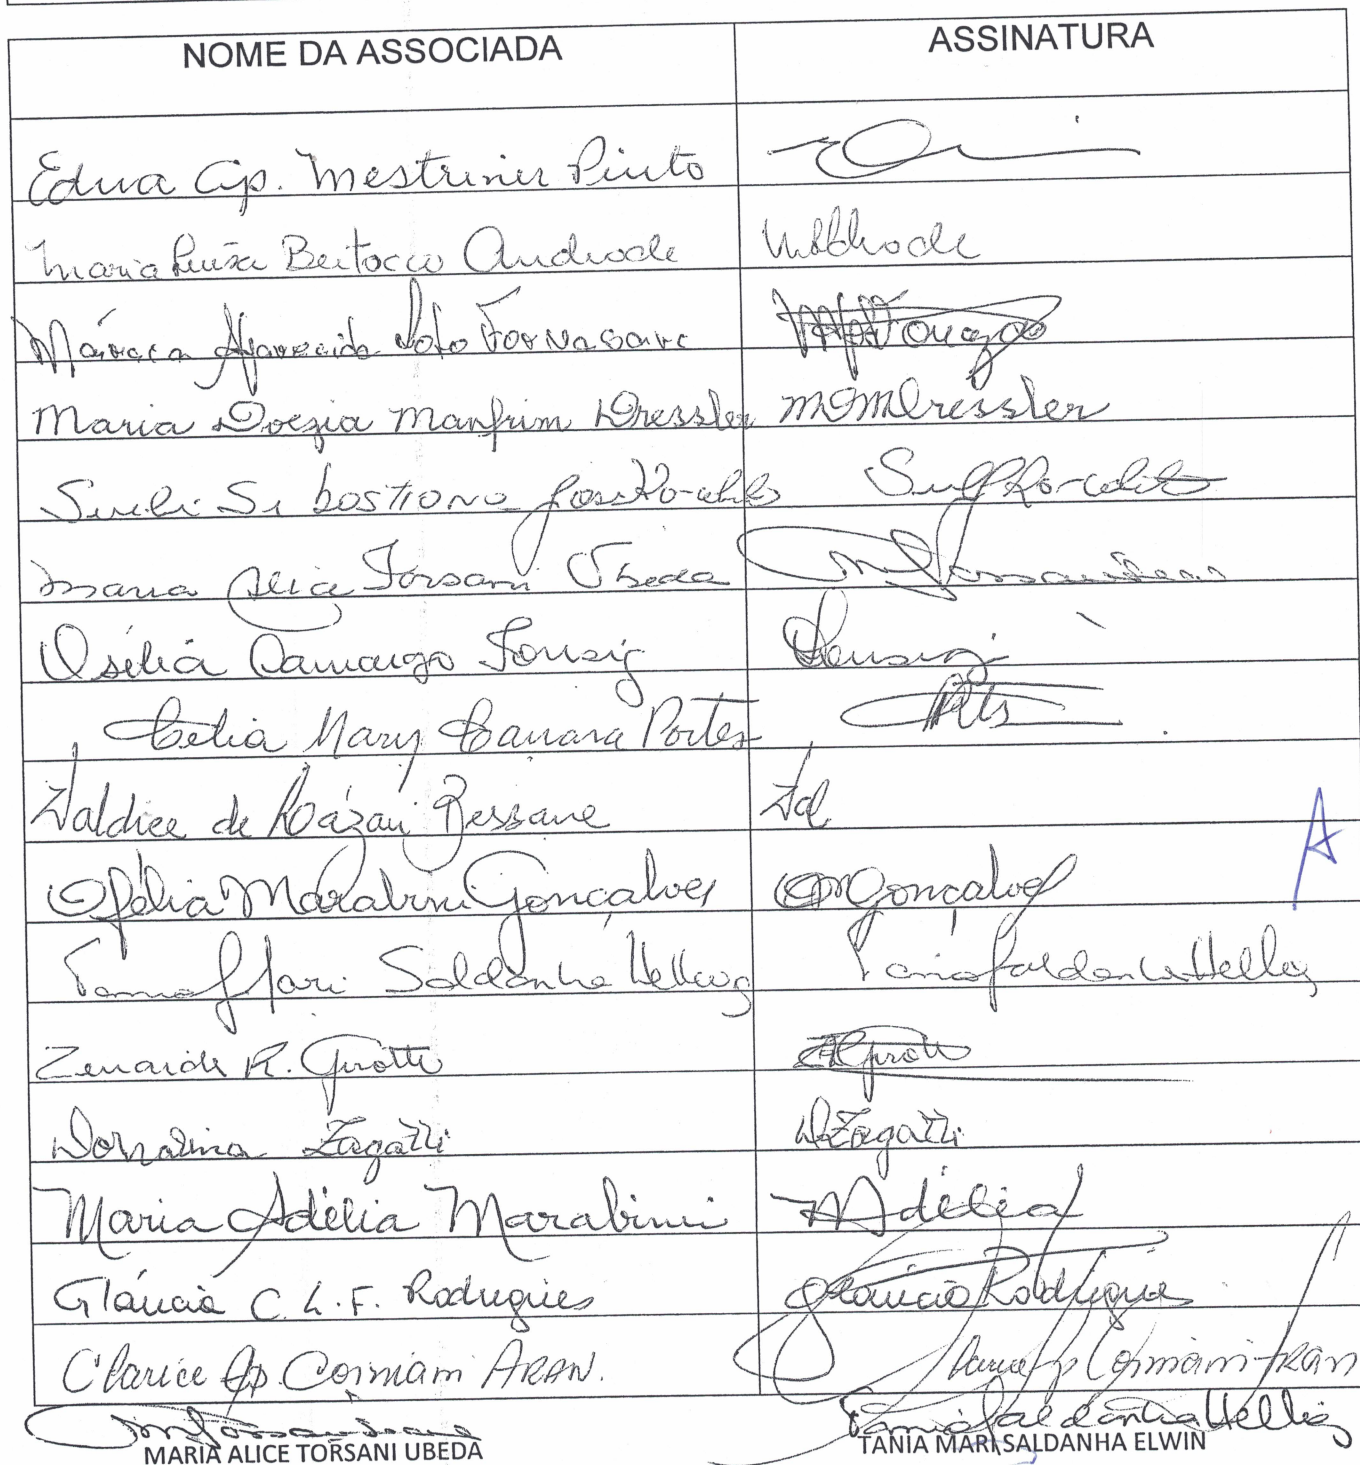 NOME DA ASSOCIADA ASSINATURA
Edna Ap. Mestriner Pinto
Maria Luiza Bertocco Andrade
Márcia Aparecida Soto Fornasari
Maria Doezia Manfrim Dressler MDMDressler
Sueli Sebastiana
Maria Alice Torsani Ubeda
Osélia Camargo
Celia Mary Camara Portes
Waldice de Bessane
Ofélia Marabini Gonçalves OMGonçalves
Tania Mari Saldanha Hellwig Tania Saldanha
Zenaide R. Girotti
Zagatti DZagatti
Maria Adélia Marabini MAdélia
Gláucia C. L. F. Rodrigues Gláucia Rodrigues
Clarice Ap. Coimiam ARAN. Clarice Ap Coimiam Aran
MARIA ALICE TORSANI UBEDA TANIA MARI SALDANHA ELWIN